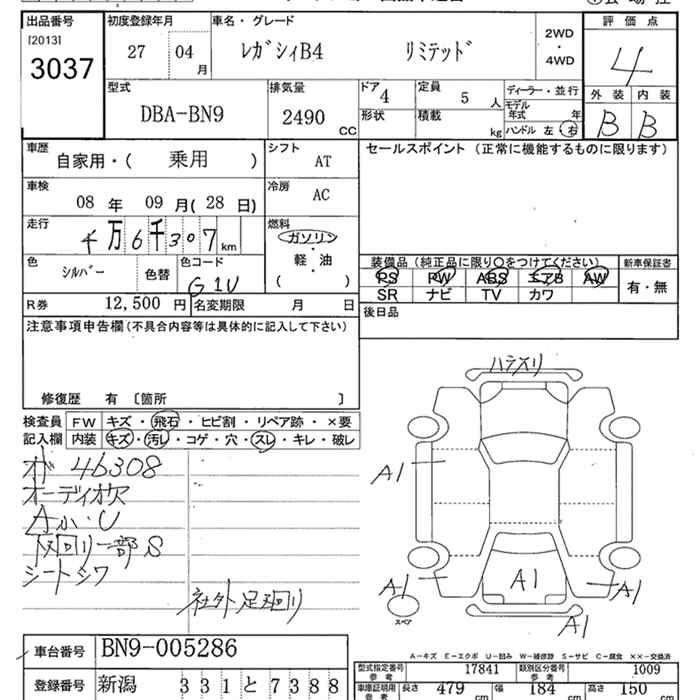 出品番号 初度登録年月 車名・グレード 評価点
[2013] 3037
27 04 月 ﾚｶﾞｼｨB4 ﾘﾐﾃｯﾄﾞ 2WD・4WD 4
型式 DBA-BN9 排気量 2490 CC
ドア 4 定員 5 人 ディーラー・並行 外装 内装
形状 積載 kg モデル年式 年 B B
ハンドル 左・右
車歴 自家用・( 乗用 ) シフト AT
セールスポイント (正常に機能するものに限ります)
車検 08 年 09 月(28 日) 冷房 AC
走行 万 6 千 307 km
燃料 ガソリン・軽・油 ( )
色 ｼﾙﾊﾞｰ 色替 色コード G1U
装備品(純正品に限り○をつけてください) 新車保証書
PS PW ABS エアB AW 有・無
SR ナビ TV カワ
R券 12,500 円 名変期限 月 日
後日品
注意事項申告欄(不具合内容等は具体的に記入して下さい)
修復歴 有 〔箇所 〕
検査員 FW キズ・飛石・ヒビ割・リペア跡・×要
記入欄 内装 キズ・汚レ・コゲ・穴・スレ・キレ・破レ
46308
オーディオ欠
A小・U
下回り一部S
シートシワ
社外足廻り
A1
A1
A1
A1
A1
スペア
A-キズ E-エクボ U-凹み W-補修跡 S-サビ C-腐食 ××-交換済
車台番号 BN9-005286
型式指定番号 参考 17841 類別区分番号 参考 1009
登録番号 新潟 331と7388
車庫証明用 参考 長さ 479 cm 幅 184 cm 高さ 150 cm